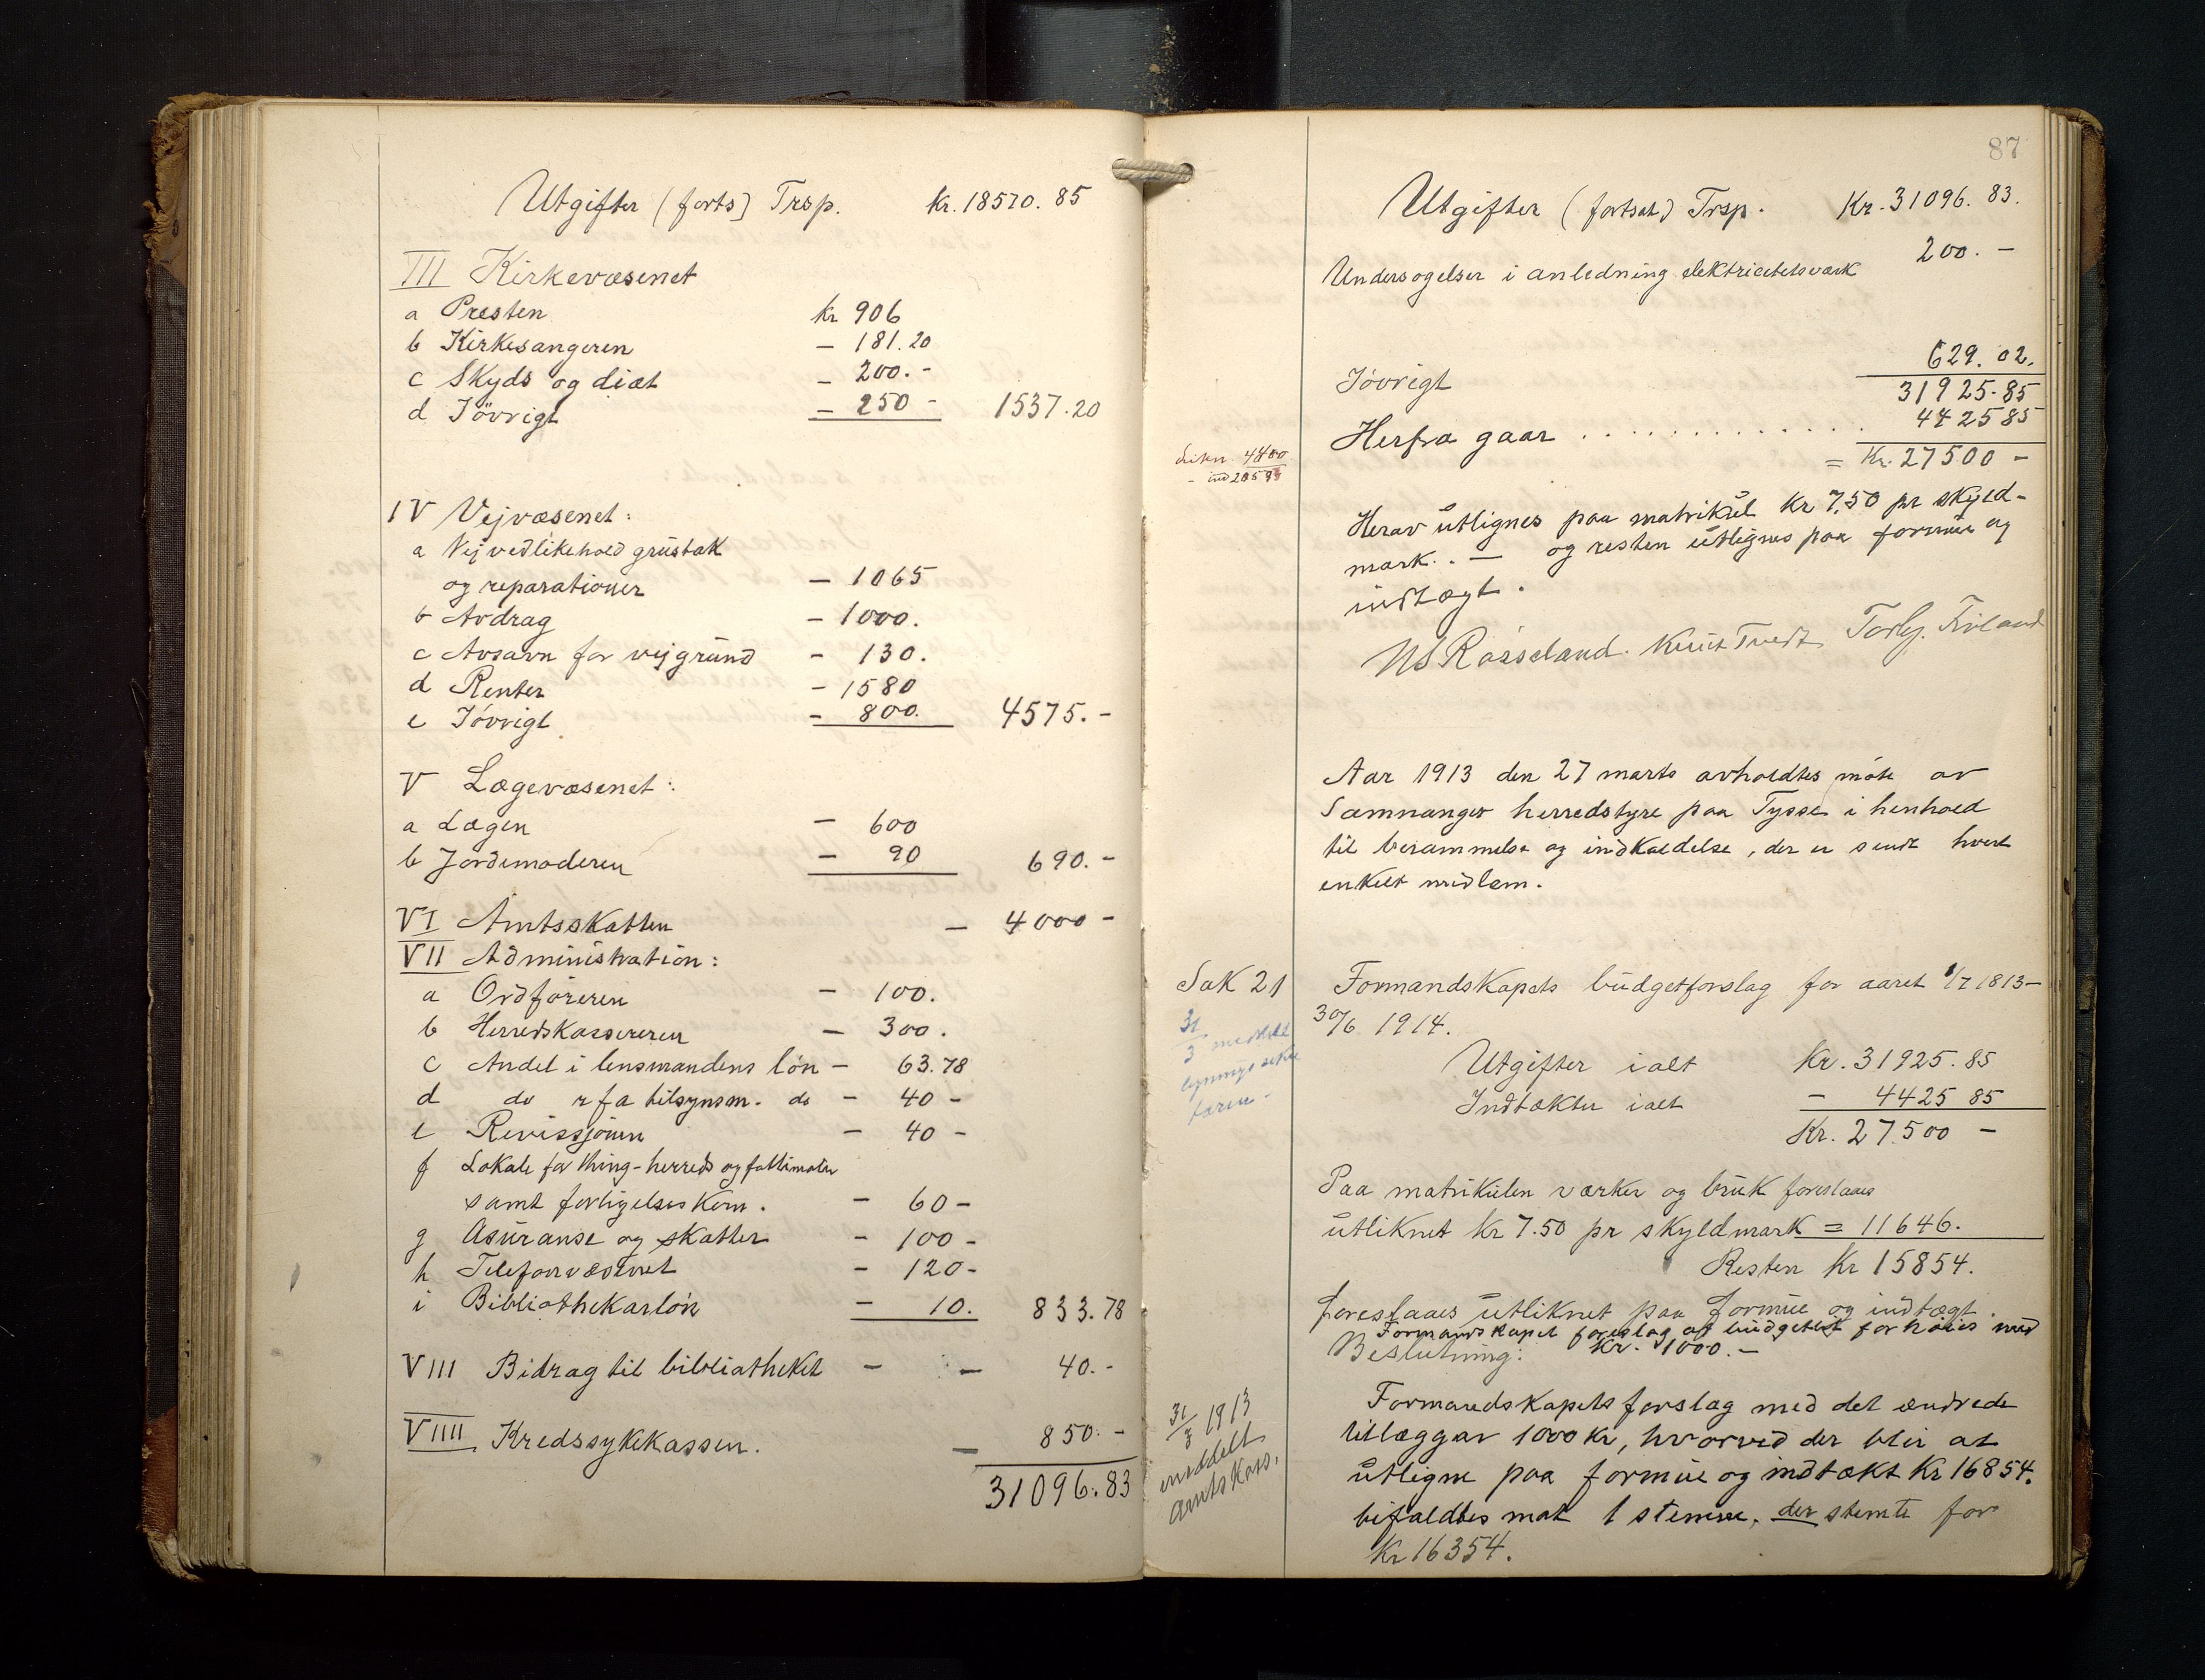 Utgifter (forts) Trsp. kr. 18570.85
III Kirkevæsenet
a Presten kr 906
b Kirkesangeren – 181.20
c Skyds og diæt – 200.-
d Iövrigt – 250 - 1537.20
IV Veivæsenet:
a Veivedlikehold grustak
og reparationer – 1065
b Avdrag – 1000.
c Avsavn for veigrund – 130.
d Renter – 1580
e Iövrigt – 800. 4575.-
V Lægevæsenet:
a Lægen – 600
b Jordemoderen – 90 690.-
VI Amtsskatten – 4000 -
VII Administration:
a Ordføreren – 100.
b Herredskassereren – 300.
c Andel i lensmandens løn – 63.78
d do rfa tilsynsm. do – 40 -
e Revissjonen – 40 -
f Lokale for thing-herreds og fattimøter
samt forligelseskom. – 60 -
g Asuranse og skatter – 100 -
h Telefonvæsenet – 120 -
i Bibliothekarløn – 10. 833.78
VIII Bidrag til bibliotheket – – 40.-
VIIII Kredssykekassen. – 850.-
31096.83
87
Utgifter (fortsat) Trsp. Kr. 31096.83.
Undersøgelser i anledning elektricetetsværk 200.-
Iøvrigt 629.02.
31925.85
Herfra gaar . . . . . . . . . . . . . 4425 85
= Kr. 27500 -
Herav utlignes paa matrikul kr 7,50 pr skyld-
mark. – og resten utlignes paa formue og
indtægt.
NS Røsseland. Knut Tvedt
Aar 1913 den 27 marts avholdtes møte av
Samnanger herredstyre paa Tysse i henhold
til berammelse og indkaldelse, der er sendt hvert
enkelt medlem.
Sak 21 Formandskapets budgetforslag for aaret 1/7 1813–
30/6 1914.
31/3 meddelt
Utgifter ialt Kr. 31925.85
Indtækter ialt – 4425 85
Kr. 27.500 –
Paa matrikulen værker og bruk foreslaaes
utliknet kr 7.50 pr skyldmark = 11646.
Resten Kr 15854.
foreslaaes utliknet paa formue og indtægt.
Formandskapet foreslog at budgettet forhøies med
Beslutning: Kr. 1000.-
31/3 1913
meddelt
Amtskass.
Formandskapets forslag med det ændrede
tillæg av 1000 kr, hvorved der blir at
utligne paa formue og indtækt Kr 16854.
bifaldtes mot 1 stemme, der stemte for
Kr 16354.